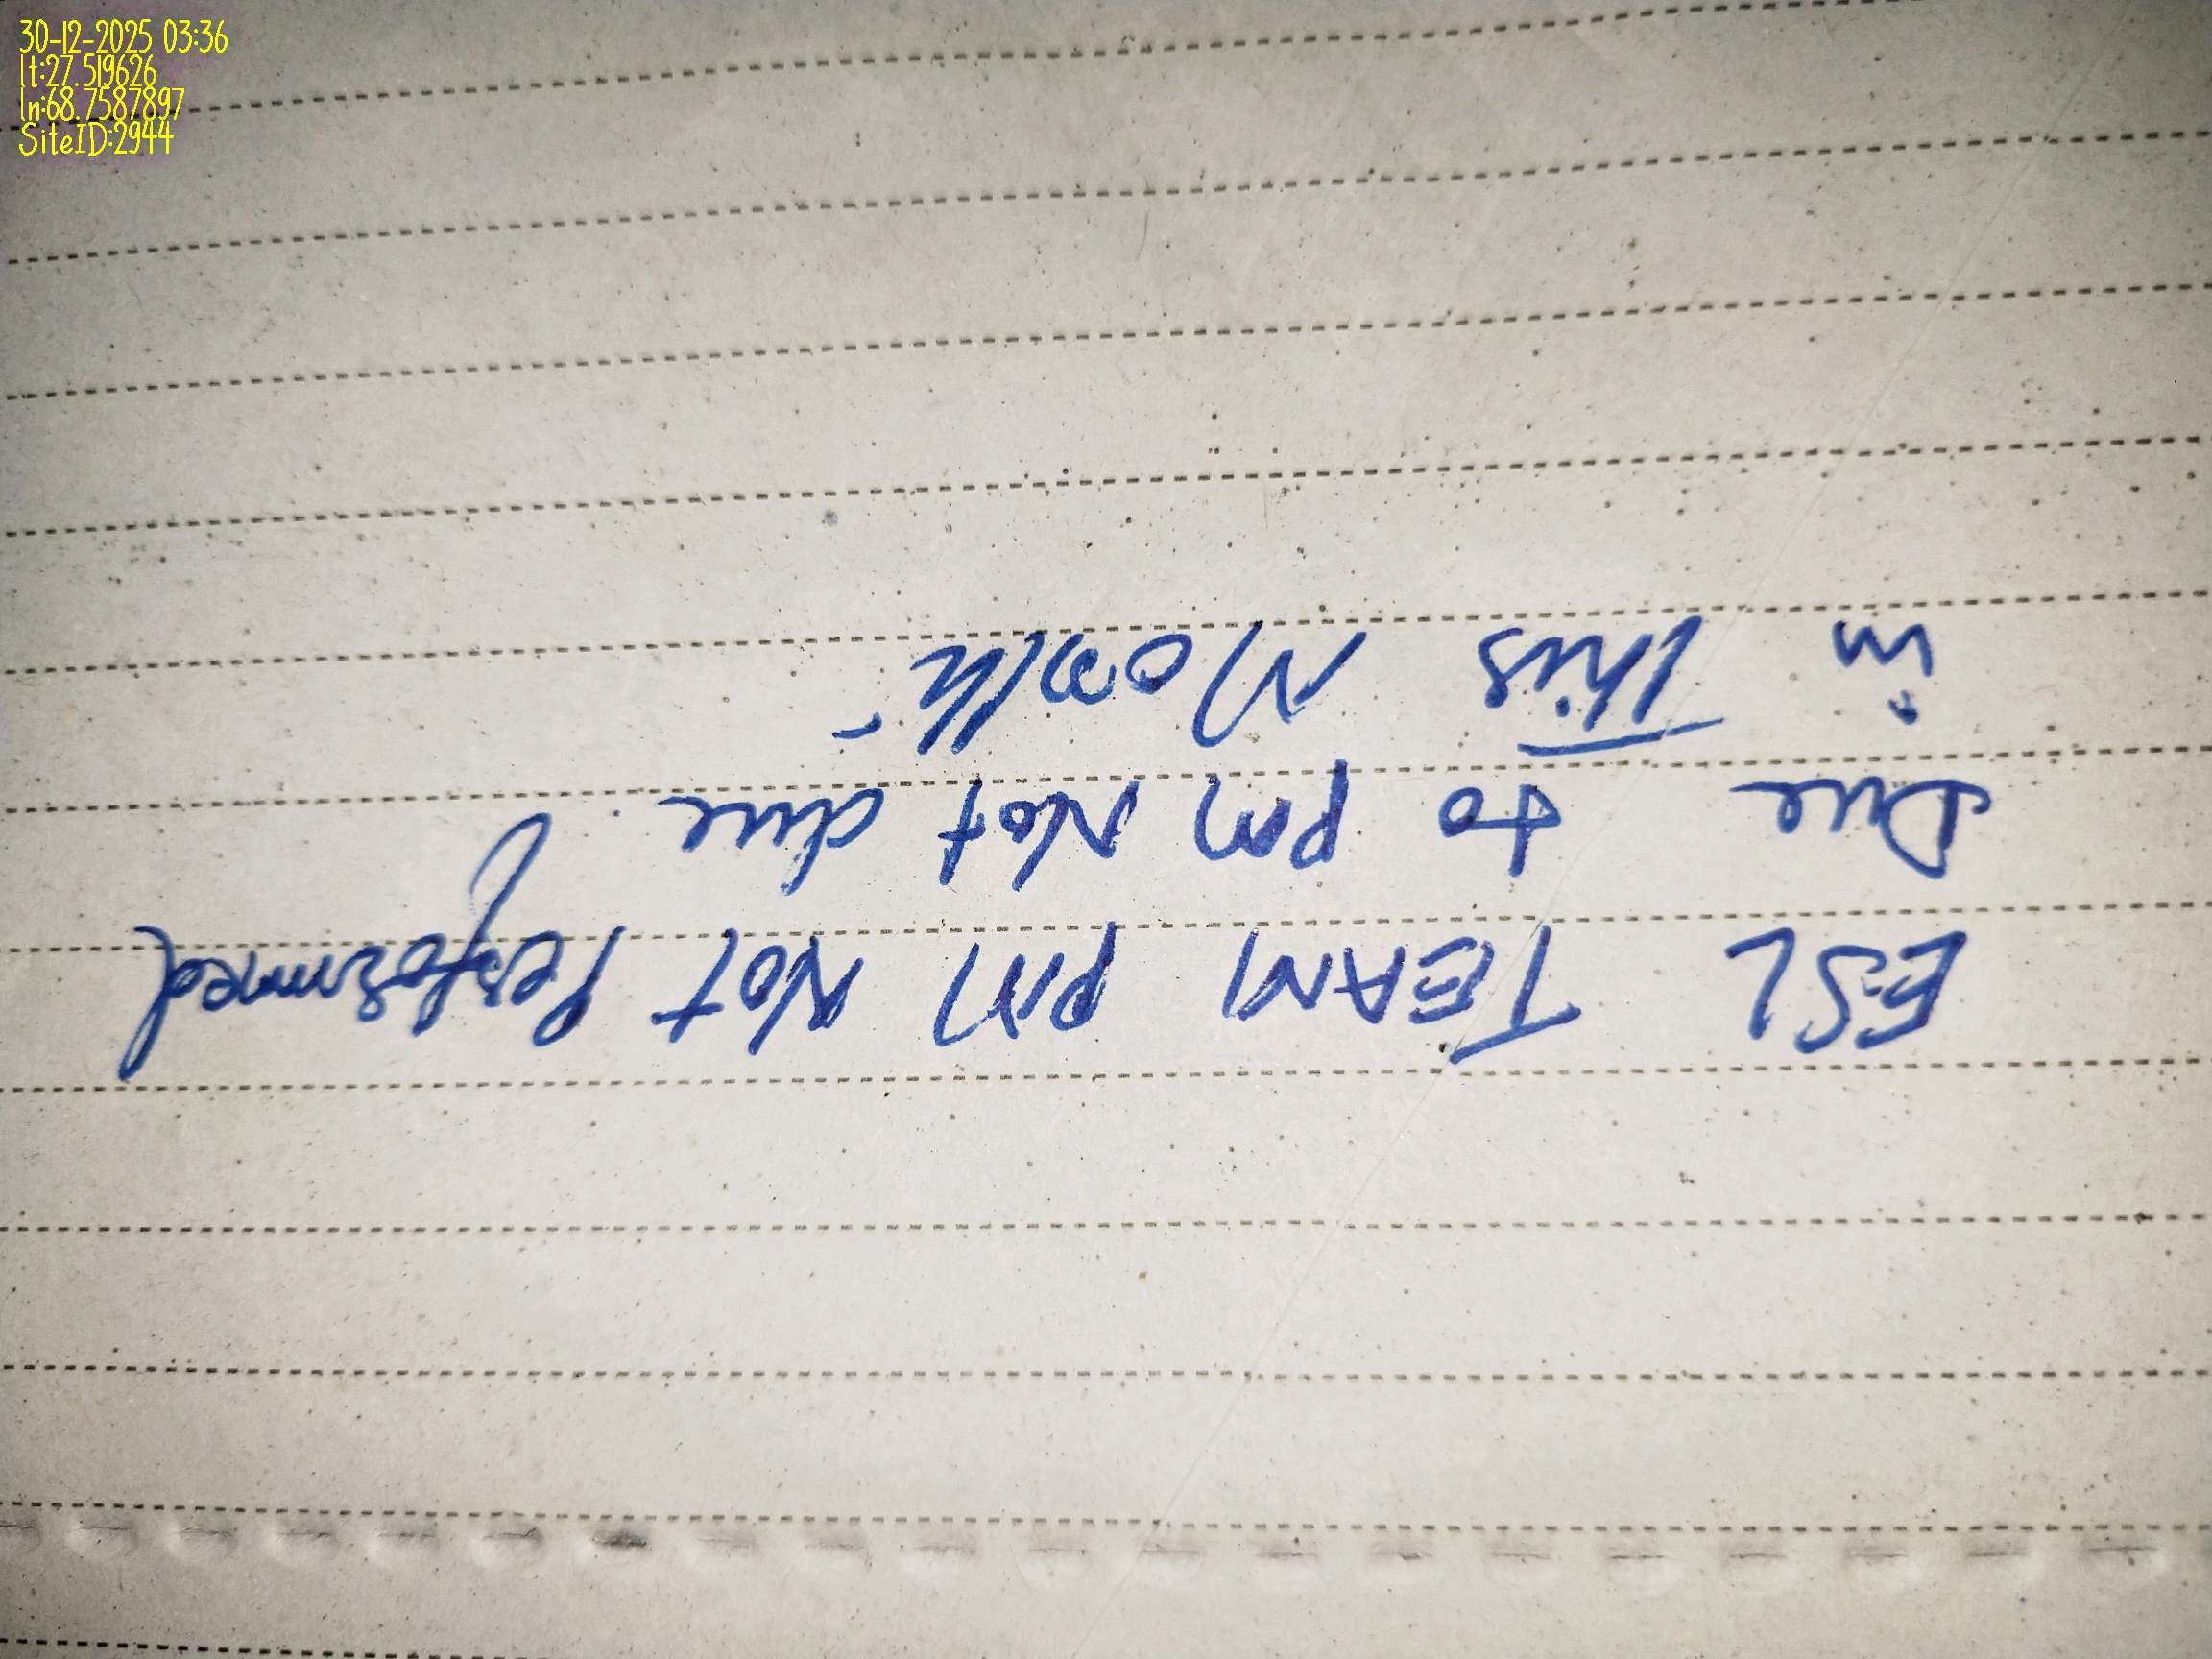 30-12-2025 03:36
lt:27.519626
ln:68.7587897
SiteID:2944
ESL TEAM PM Not Performed
Due to PM Not due
in This Month-